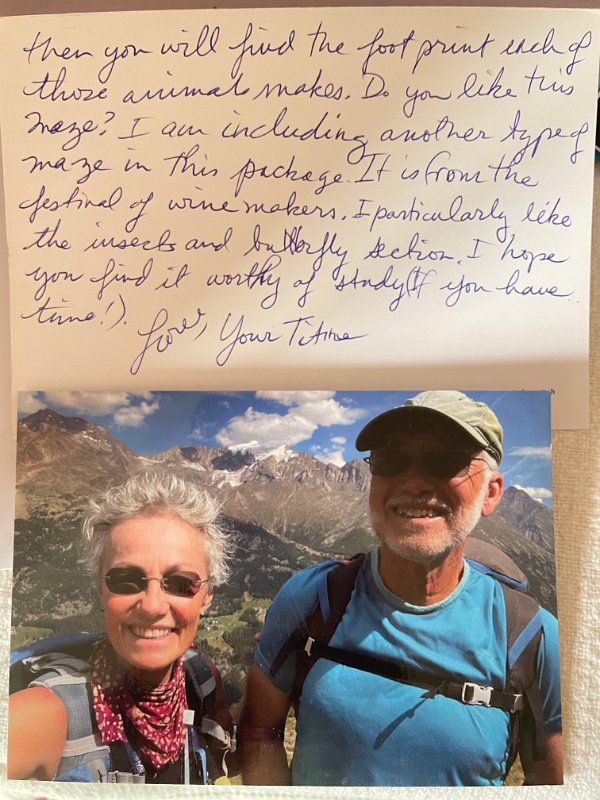 then you will find the foot print each of
those animals makes. Do you like this
maze? I am including another type of
maze in this package. It is from the
festival of wine makers. I particularly like
the insects and butterfly section. I hope
you find it worthy of study (If you have
time!).
Love, Your